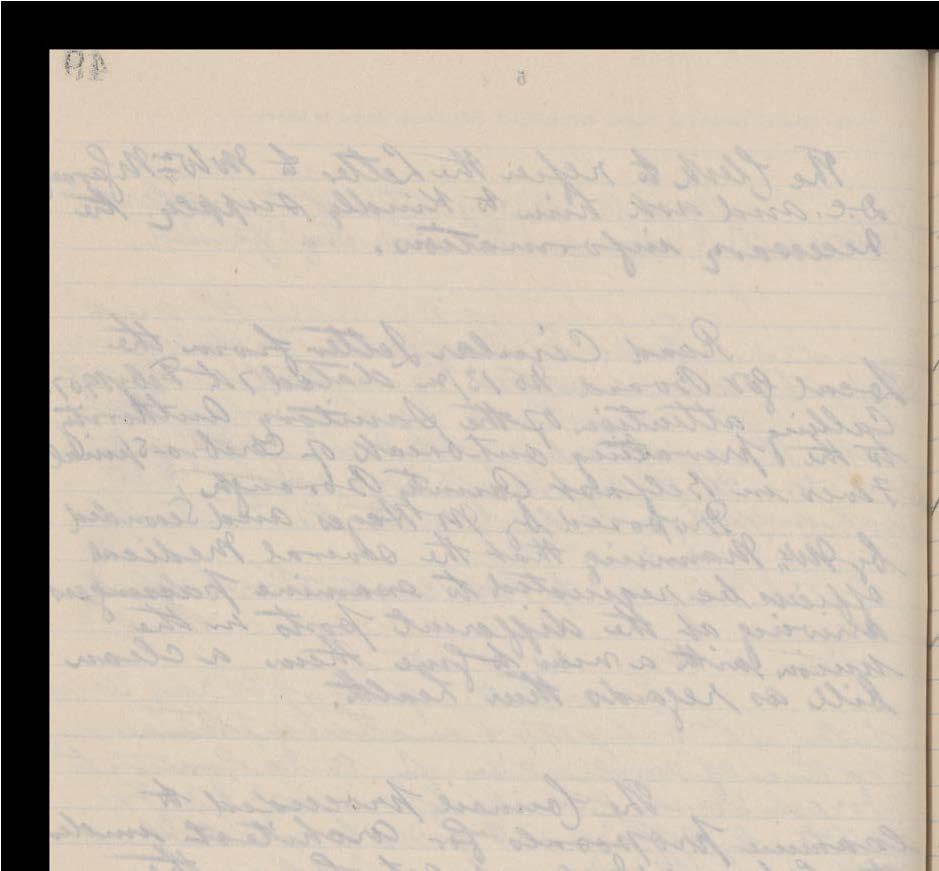 49
5
The Clerk to refer the letter to Mr Wm
D.C. and ask him to kindly supply the
necessary information.
Read Circular Letter from the
Local Gov Board No 13/m dated 7th Feby 1907
Calling attention of the Sanitary Authority
to the prevailing outbreak of Cerebro-Spinal
Fever in Belfast County Borough.
Proposed by Mr Hayes and Seconded
by Mr Manning that the several Medical
Officers be requested to examine passengers
arriving at the different ports in the
Union with a view to give them a clean
bill as regards their health.
The Council proceeded to
examine proposals for Architect